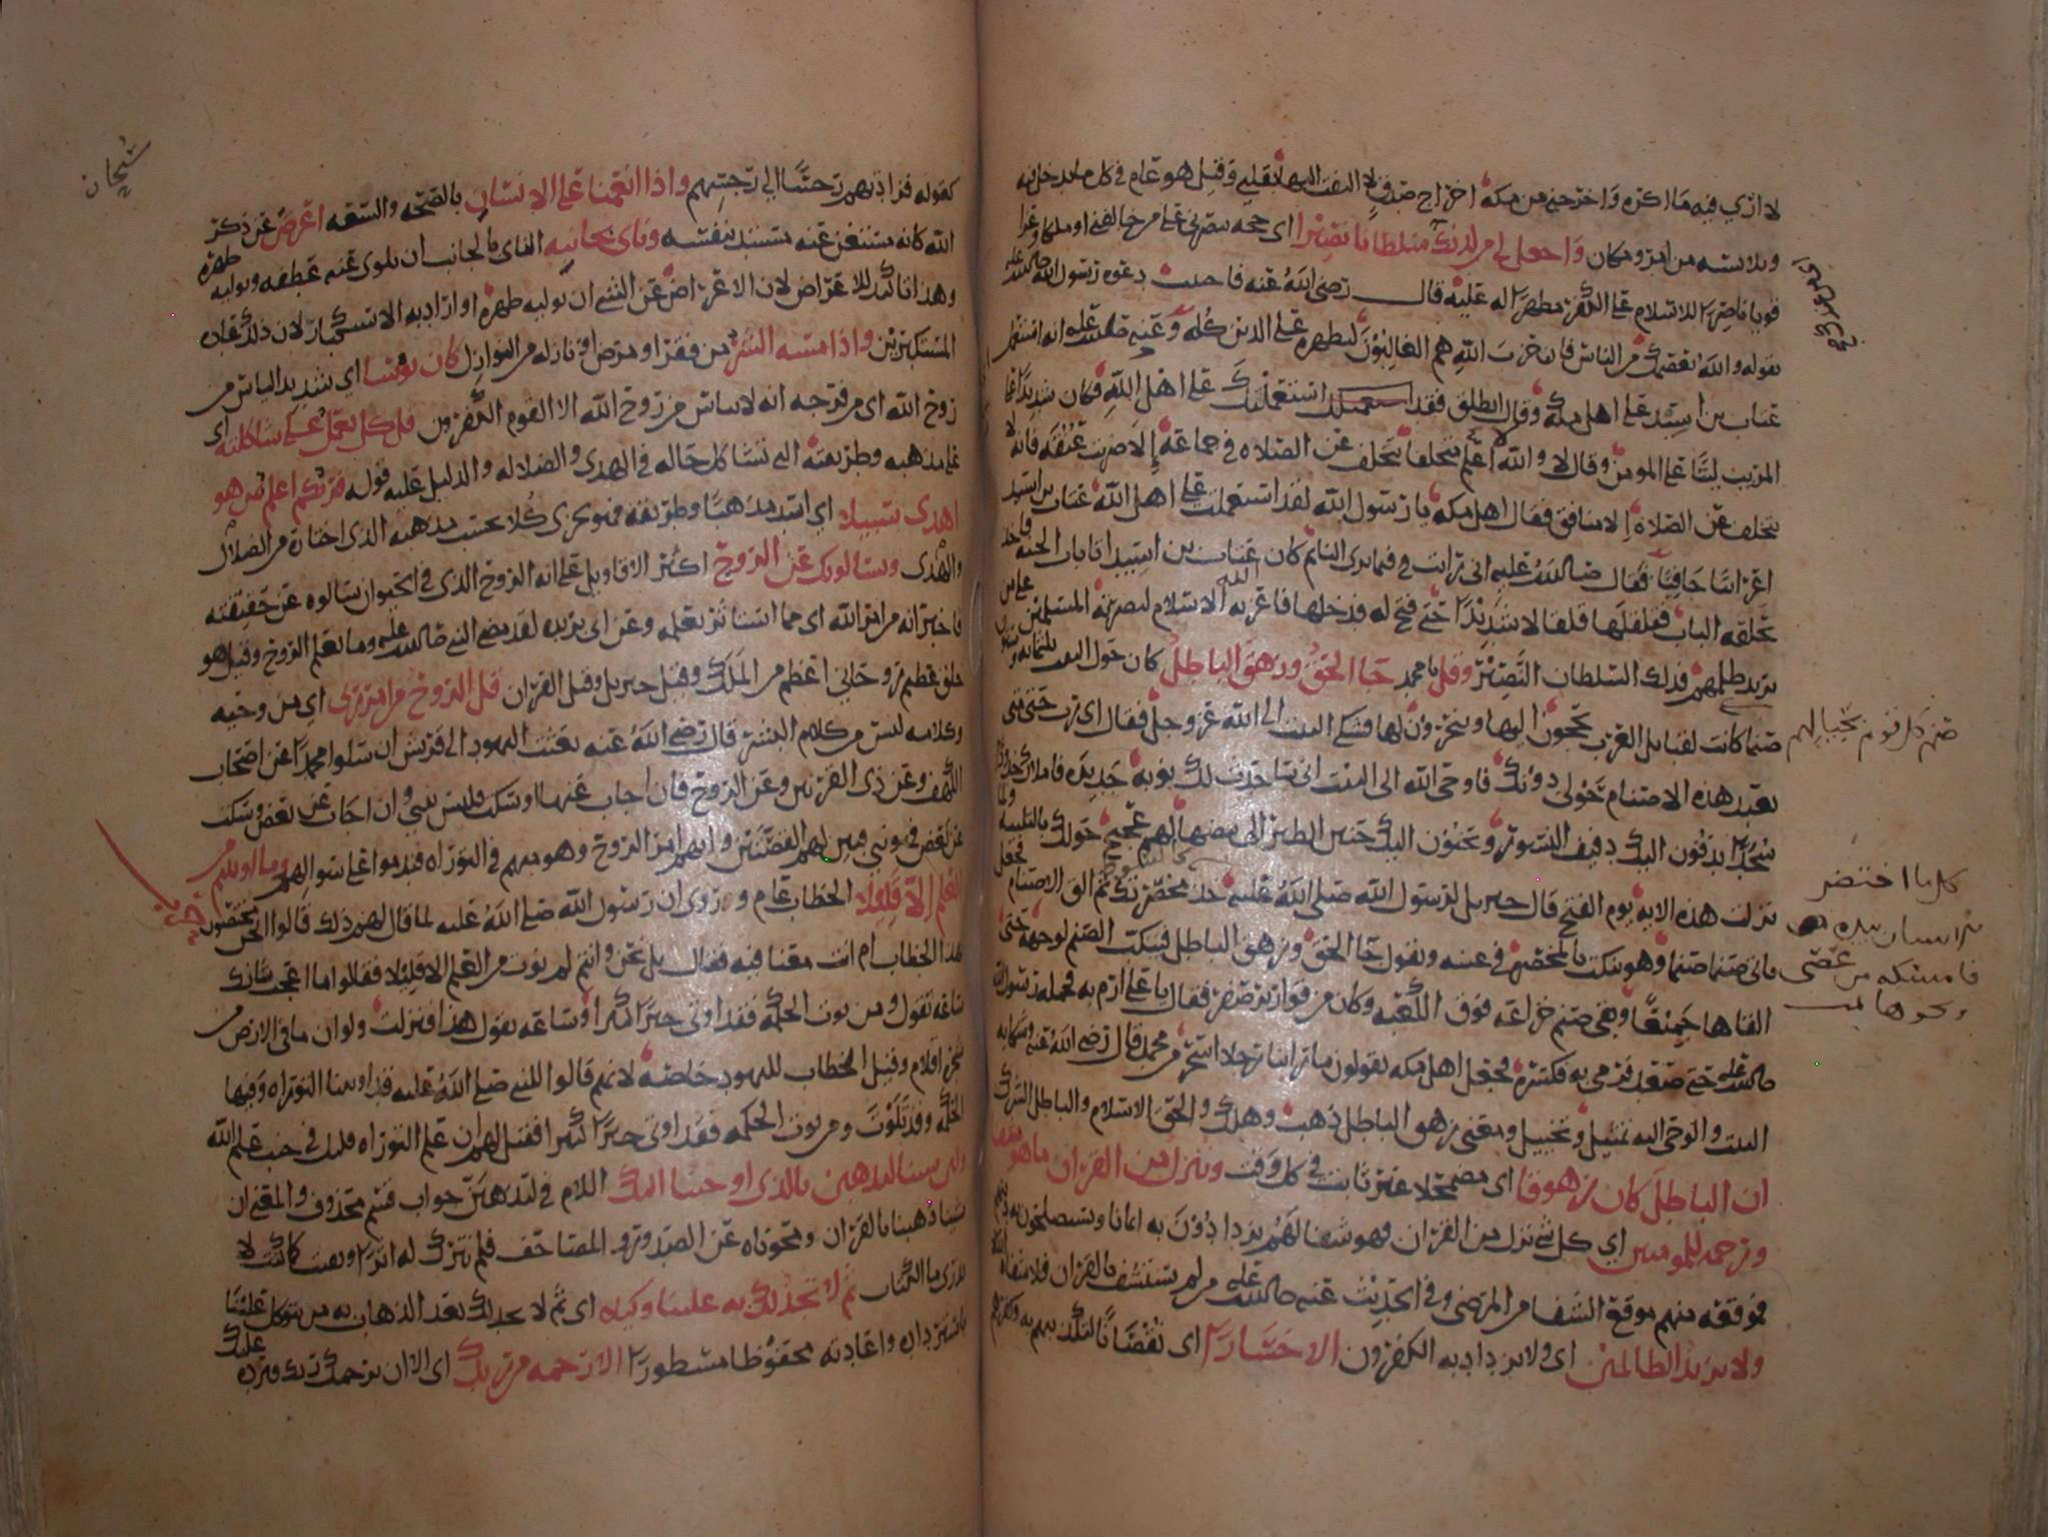 لا ارى فيه ما اكره واخرجني من مكة اخراج صدق لا التفت اليها بقلبي وقيل هو عام في كل ما يدخل فيه
ويلابسه من امر ومكان واجعل لي من لدنك سلطانا نصيرا اي حجة تنصرني على من خالفني او ملكا وعزا
قويا ناصرا للاسلام على الكفر مظهرا له عليه قال رضي الله عنه فاجيبت دعوة رسول الله صلى الله عليه
بقوله والله يعصمك من الناس فان حزب الله هم الغالبون ليظهره على الدين كله وعنه صلى الله عليه انه استعمل
عتاب بن اسيد على اهل مكة وقال انطلق فقد استعملتك على اهل الله فكان شديدا على
المريب لينا على المومن وقال لا والله لا اعلم متخلفا يتخلف عن الصلاة في جماعة إلا ضربت عنقه فانه لا
يتخلف عن الصلاة إلا منافق فقال اهل مكة يا رسول الله لقد استعملت على اهل الله عتاب بن اسيد
اعرابيا جافيا فقال صلى الله عليه اني رايت فيما يرى النائم كان عتاب بن اسيد اتا باب الجنة فاخذ
بحلقة الباب فقلقلها قلقالا شديدا حتى فتح له فدخلها فاعز به الله الاسلام لنصرته المسلمين على من
يريد ظلمهم فذلك السلطان النصير وقل يا محمد جا الحق وزهق الباطل كان حول البيت ثلثمائة وستون
صنما كانت لقبايل العرب يحجون اليها وينحرون لها فشكى البيت الى الله عز وجل فقال اي رب حتى متى
تعبد هذه الاصنام حولي دونك فاوحى الله الى البيت اني ساحدث لك نوبة جديدة فاملاك خدودا
سجدا يدفون اليك دفيف النسور ويحنون اليك حنين الطير الى بيضها لهم عجيج حولك بالتلبية ولما
نزلت هذه الاية يوم الفتح قال جبريل لرسول الله صلى الله عليه خذ مخصرتك ثم القها فجعل
ياتي صنما صنما وهو ينكت بالمخصرة في عينه ويقول جا الحق وزهق الباطل فينكب الصنم لوجهه حتى
القاها جميعا وبقي صنم خزاعة فوق الكعبة وكان من قوارير صفر فقال يا علي ارم به فحمله رسول الله
صلى الله عليه حتى صعد فرمى به فكسره فجعل اهل مكة يقولون ما راينا رجلا اسحر من محمد قال رضي الله عنه وشكاية
البيت والوحي اليه تمثيل وتخييل ومعنى زهق الباطل ذهب وهلك والحق الاسلام والباطل الشرك
ان الباطل كان زهوقا اي مضمحلا غير ثابت في كل وقت وننزل من القران ما هو شفا
ورحمة للمومنين اي كل شي نزل من القران فهو شفا لهم يزدادون به ايمانا ويستصلحون به دينهم
فموقعه منهم موقع الشفا من المرضى وفي الحديث عنه صلى الله عليه من لم يستشف بالقران فلا شفاه الله
ولا يزيد الظالمين اي ولا يزداد به الكفرون الا خسارا اي نقصانا لتكذيبهم به وكفرهم
صنم كل قوم بحيالهم
كل ما اختصر
الانسان بيده
فامسكه من عصى
ونحوها
كقوله فزادتهم رجسا الى رجسهم واذا انعمنا على الانسان بالصحة والسعة اعرض عن ذكر
الله كانه مستغن عنه مستبد بنفسه وناى بجانبه الناى بالجانب ان يلوي عنه عطفه ويوليه ظهره
وهذا تاكيد للاعراض لان الاعراض عن الشي ان يوليه ظهره او اراد به الاستكبار لان ذلك عادة
المستكبرين واذا مسه الشر من فقر او مرض او نازلة من النوازل كان يؤسا اي شديد الياس من
روح الله اي من فرجه انه لا يياس من روح الله الا القوم الكفرون قل كل يعمل على شاكلته اي
على مذهبه وطريقته التي تشاكل حاله في الهدى والضلالة والدليل عليه قوله فربكم اعلم بمن هو
اهدى سبيلا اي اسد مذهبا وطريقة فهو يجزي كلا بحسب مذهبه الذي اختاره من الضلال
والهدى ويسالونك عن الروح اكثر الاقاويل على انه الروح الذي في الحيوان سالوه عن حقيقته
فاخبر انه من امر الله اي مما استاثر بعلمه وعن ابي بريدة لقد مضى النبي صلى الله عليه وما يعلم الروح وقيل هو
خلق عظيم روحاني اعظم من الملك وقيل جبريل وقيل القران قل الروح من امر ربي اي من وحيه
وكلامه ليس من كلام البشر قال رضي الله عنه بعثت اليهود الى قريش ان سلوا محمدا عن اصحاب
الكهف وعن ذي القرنين وعن الروح فان اجاب عنها او سكت فليس بنبي وان اجاب عن بعض وسكت
عن بعض فهو نبي فبين لهم القصتين وابهم امر الروح وهو مبهم في التوراة فندموا على سوالهم وما اوتيتم من
العلم إلا قليلا الخطاب عام وروي ان رسول الله صلى الله عليه لما قال لهم ذلك قالوا نحن مختصون
بهذا الخطاب ام انت معنا فيه فقال بل نحن وانتم لم نوت من العلم الا قليلا فقالوا ما اعجب شانك
ساعة تقول ومن يوت الحكمة فقد اوتي خيرا كثيرا وساعة تقول هذا فنزلت ولو ان ما في الارض من
شجرة اقلام وقيل الخطاب لليهود خاصة لانهم قالوا للنبي صلى الله عليه قد اوتينا التوراة وفيها
الحكمة وقد تلوت ومن يوت الحكمة فقد اوتي خيرا كثيرا فقيل لهم ان علم التوراة قليل في جنب علم الله
ولين شينا لنذهبن بالذي اوحينا اليك اللام في لنذهبن جواب قسم محذوف والمعنى ان
شينا ذهبنا بالقران ومحوناه عن الصدور والمصاحف فلم نترك له اثرا وبقيت كما كنت لا
تدري ما الكتاب ثم لا تجد لك به علينا وكيلا اي ثم لا تجد لك بعد الذهاب به من يتوكل علينا
باسترداده واعادته محفوظا مسطورا الا رحمة من ربك اي الا ان يرحمك ربك فيرده عليك